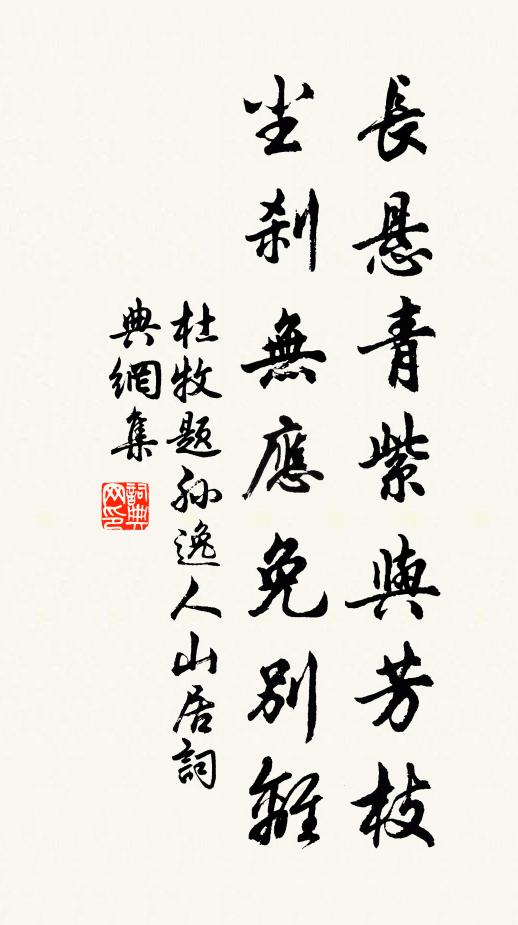 長悬青紫與芳枝
尘刹無應免別離
杜牧題孙逸人山居詞
典網集
詞典网印